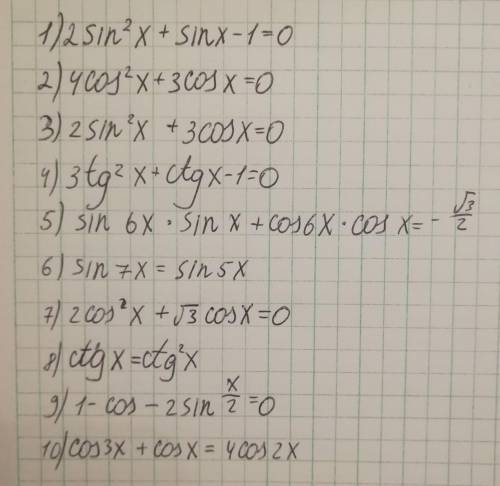 1) 2sin²x + sinx - 1 = 0
2) 4cos²x + 3cosx = 0
3) 2sin²x + 3cosx = 0
4) 3tg²x + ctgx - 1 = 0
5) sin 6x · sin x + cos6x · cos x = - √3/2
6) sin7x = sin5x
7) 2cos²x + √3 cosx = 0
8) ctgx = ctg²x
9) 1 - cos - 2sin x/2 = 0
10) cos3x + cosx = 4cos2x